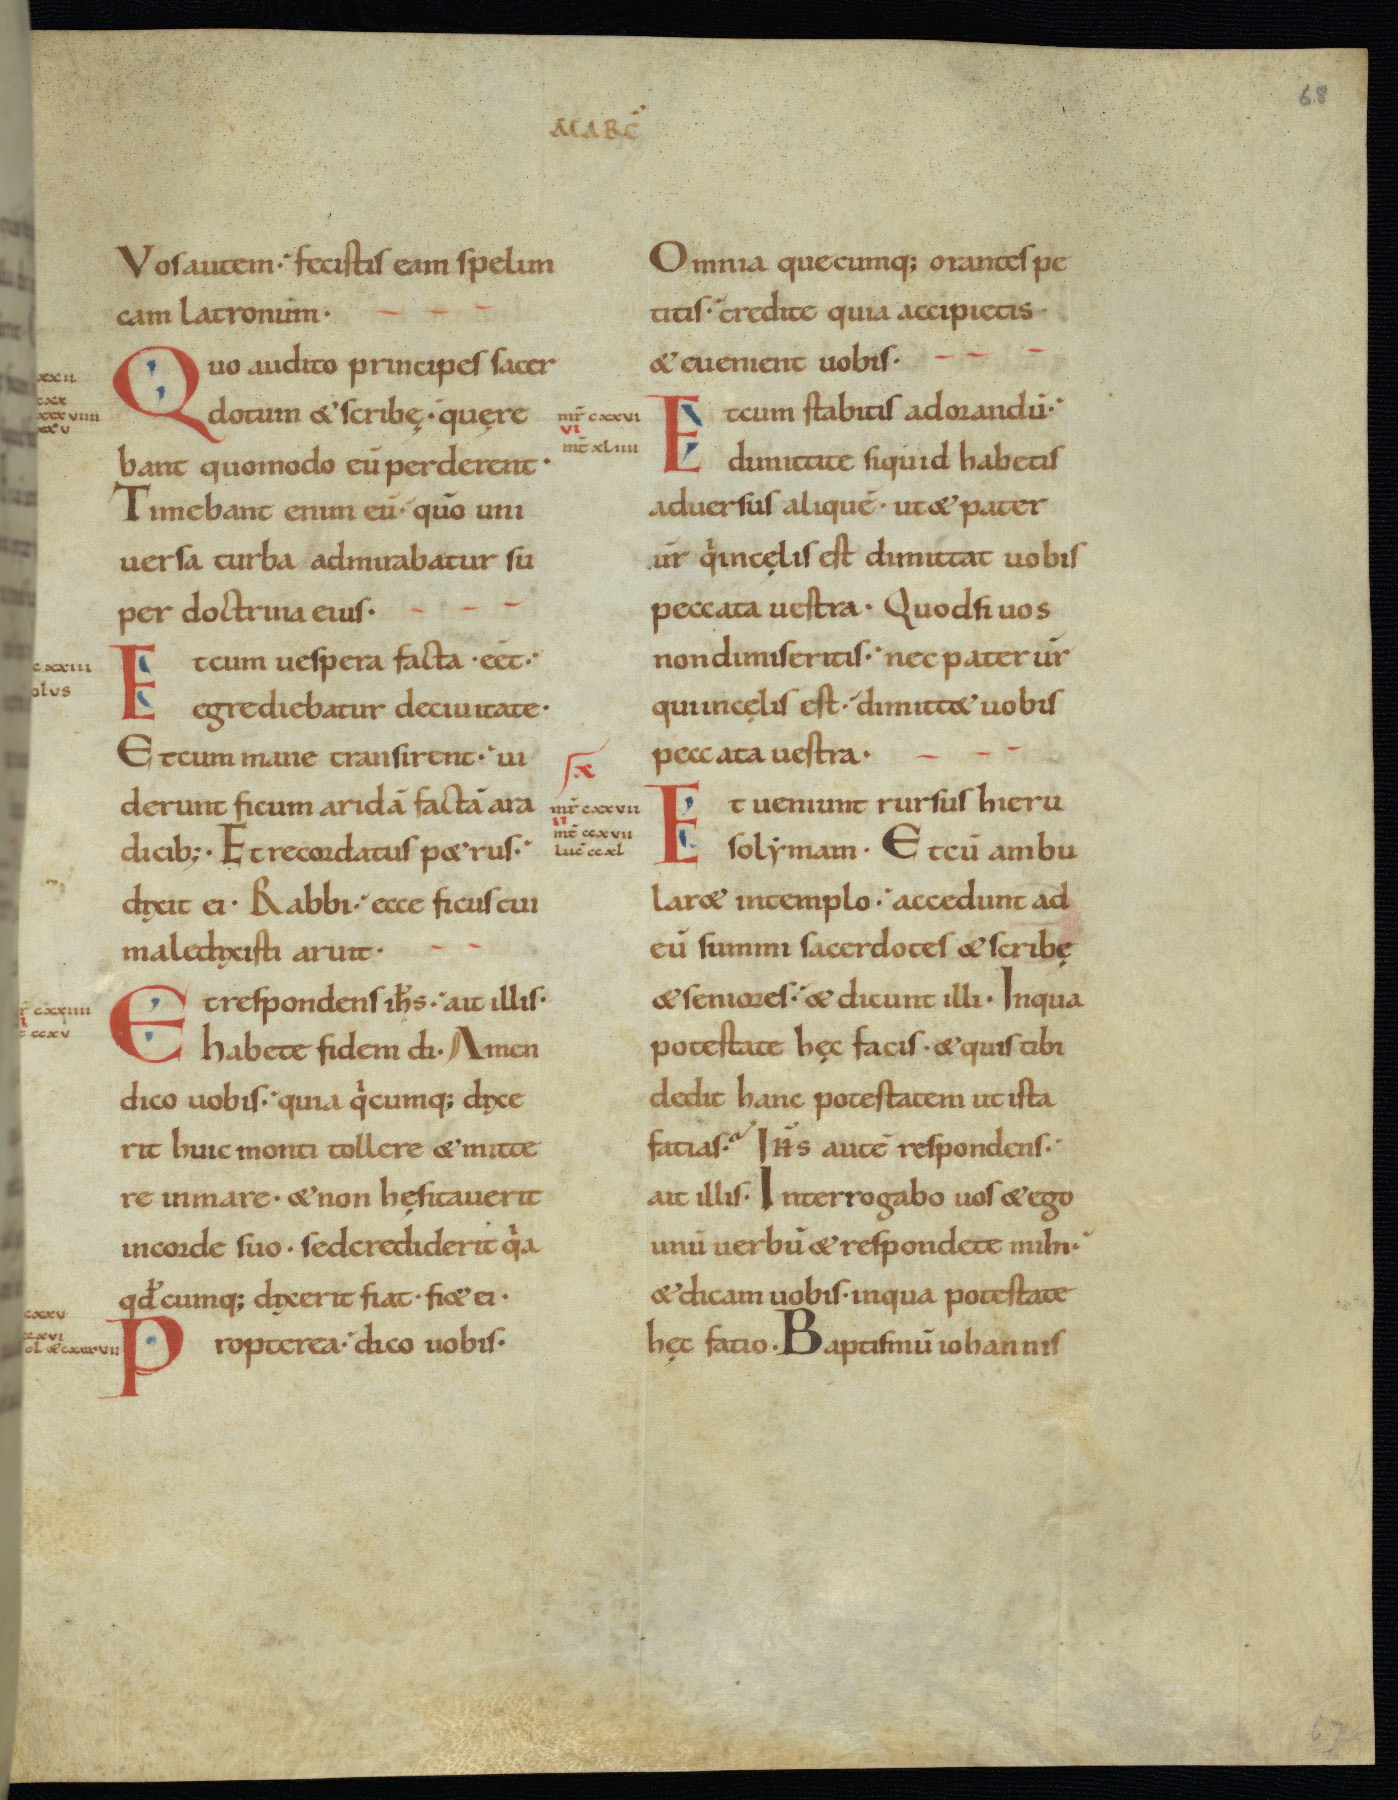 68
MARC̄
Vos autem· fecistis eam spelun
cam latronum·
Quo audito principes sacer
dotum & scribę· quęre
bant quomodo eū perderent·
Timebant enim eū· quō uni
uersa turba admirabatur su
per doctrina eius·
Et cum uespera facta ·eēt·
egrediebatur de ciuitate·
Et cum mane transirent· ui
derunt ficum aridā factā ara
dicib;· Et recordatus p&rus·
dixit ei· Rabbi· ecce ficus cui
maledixisti aruit·
Et respondens ih̅s· ait illis·
habete fidem di· Amen
dico uobis· quia q̍cumq; dixe
rit huic monti tollere & mitte
re in mare· & non hęsitauerit
in corde suo· sed crediderit q̍a
qd̄cumq; dixerit fiat· fi& ei·
Propterea· dico uobis·
mr̄ cxxvi
vi
mt̄ xliiii
sx
mr̄ cxxvii
ii
mt̄ ccxvii
luc̄ ccxl
Omnia quecumq; orantes pe
titis· credite quia accipietis
& euenient uobis·
Et cum stabitis ad orandū·
dimittite siquid habetis
aduersus aliquē· ut & pater
ur̄ q̍ in cęlis est dimittat uobis
peccata uestra· Quod si uos
non dimiseritis· nec pater ur̄
qui in cęlis est· dimitt& uobis
peccata uestra·
Et ueniunt rursus hieru
solẏmam· Et cū ambu
lar& in templo· accedunt ad
eū summi sacerdotes & scribę
& seniores· & dicunt illi· In qua
potestate hęc facis· & quis tibi
dedit hanc potestatem ut ista
fatias· Ih̅s autē respondens·
ait illis· Interrogabo uos & ego
unū uerbū & respondete mihi·
& dicam uobis· in qua potestate
hęc fatio· Baptismū iohannis
67